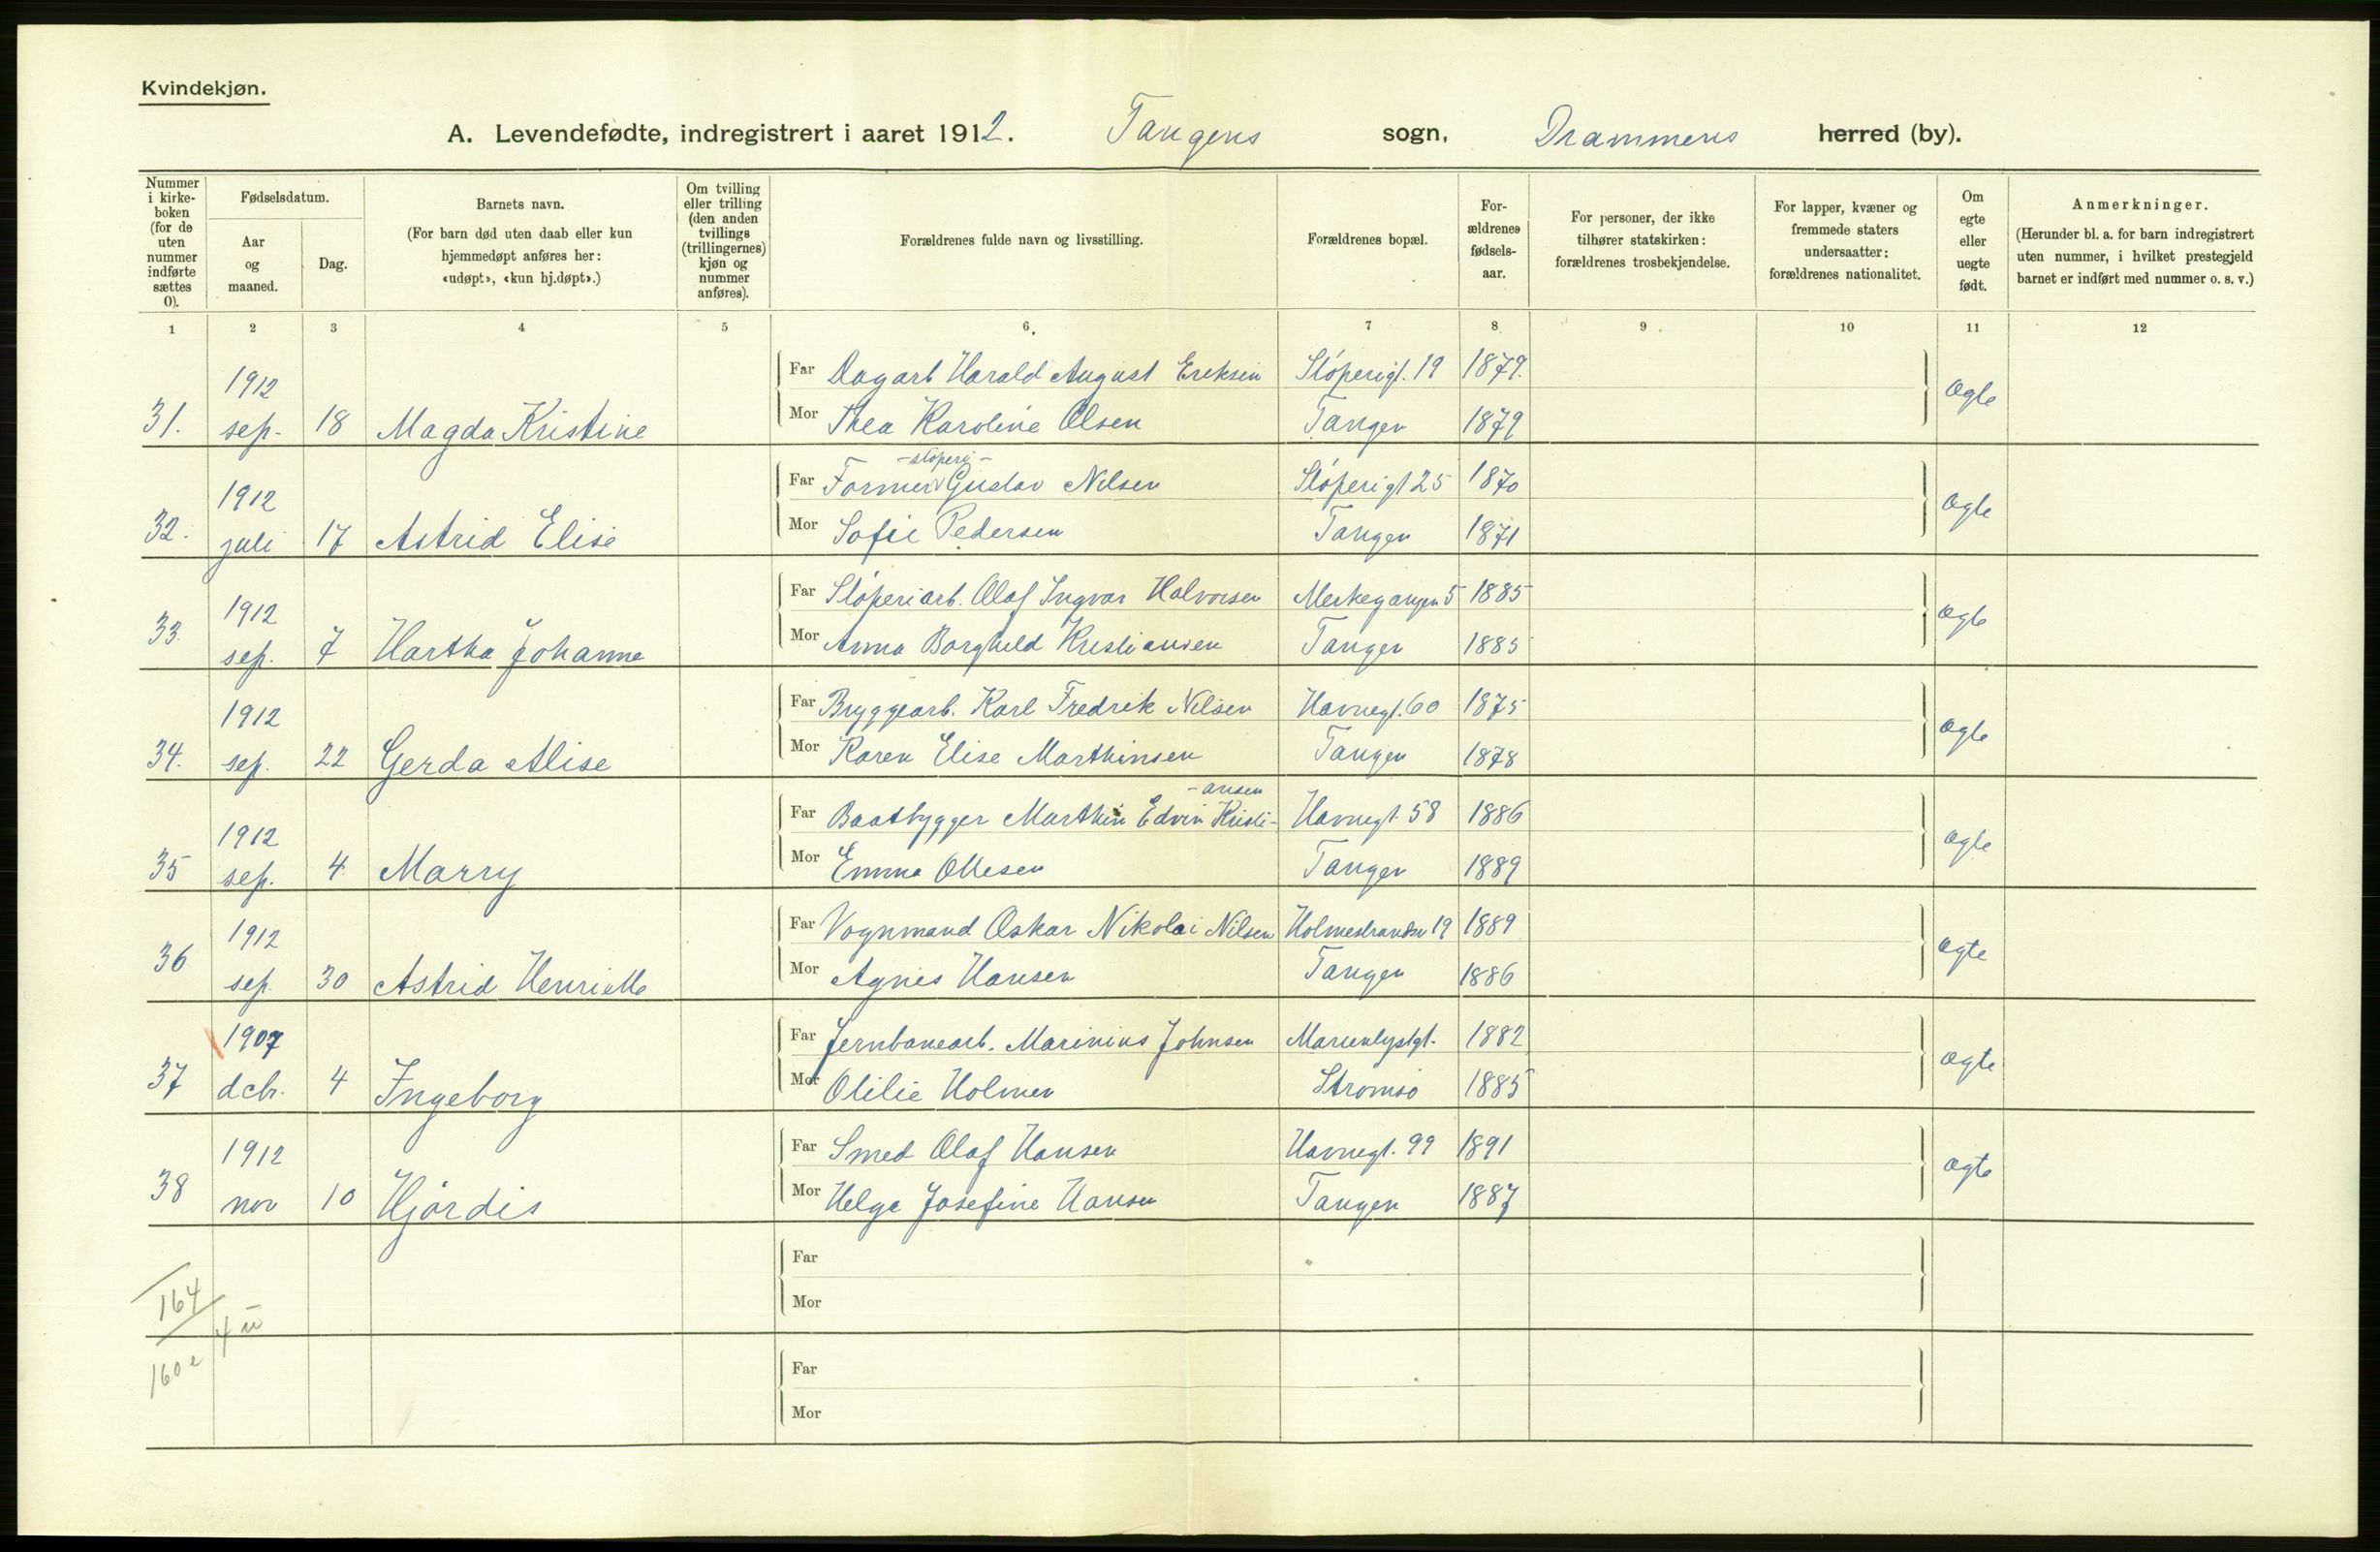 Kvindekjøn.
A. Levendefødte, indregistrert i aaret 1912. Tangens sogn, Drammens herred (by).
Nummer i kirkeboken (for de uten nummer indførte sættes 0).
Fødselsdatum.
Aar og maaned.
Dag.
Barnets navn.
(For barn død uten daab eller kun hjemmedøpt anføres her: «udøpt», «kun hj.døpt».)
Om tvilling eller trilling (den anden tvillings (trillingernes) kjøn og nummer anføres).
Forældrenes fulde navn og livsstilling.
Forældrenes bopæl.
Forældrenes fødselsaar.
For personer, der ikke tilhører statskirken: forældrenes trosbekjendelse.
For lapper, kvæner og fremmede staters undersaatter: forældrenes nationalitet.
Om egte eller uegte født.
Anmerkninger.
(Herunder bl. a. for barn indregistrert uten nummer, i hvilket prestegjeld barnet er indført med nummer o. s. v.)
1 2 3 4 5 6. 7 8 9 10 11 12
1912 Far Dagarb Harald August Ereksen Støperigt. 19 1879.
31. sep. 18 Magda Kristine Mor Thea Karoline Olsen Tangen 1879 ægte
-støperi-
1912 Far Former Gustav Nilsen Støperigt 25 1870
32. juli 17 Astrid Elise Mor Sofie Pedersen Tangen 1871 ægte
1912 Far Støperiarb. Olaf Ingvar Halvorsen Merkegangen 5 1885
33. sep. 7 Hartha Johanne Mor Anna Borghild Kristiansen Tangen 1885 ægte
1912 Far Bryggearb. Karl Fredrik Nilsen Havnegt. 60 1875
34. sep. 22 Gerda Alise Mor Karen Elise Marthinsen Tangen 1878 ægte
-ansen
1912 Far Baatbygger Marthin Edvin Kristi- Havnegt. 58 1886
35 sep. 4 Marry Mor Emma Ottesen Tangen 1889 ægte
1912 Far Vognmand Oskar Nikolai Nilsen Holmestrandsv 19 1889
36 sep. 30 Astrid Henriette Mor Agnes Hansen Tangen 1886 ægte
1907 Far Jernbanearb. Marinius Johnsen Marienlystgt. 1882
37 dcbr. 4 Ingeborg Mor Otilie Holmen Strømsø 1885 ægte
1912 Far Smed Olaf Hansen Havnegt. 99 1891
38 nov 10 Hjørdis Mor Helga Josefine Hansen Tangen 1887 ægte
Far
164
Mor
4 u
160 e
Far
Mor